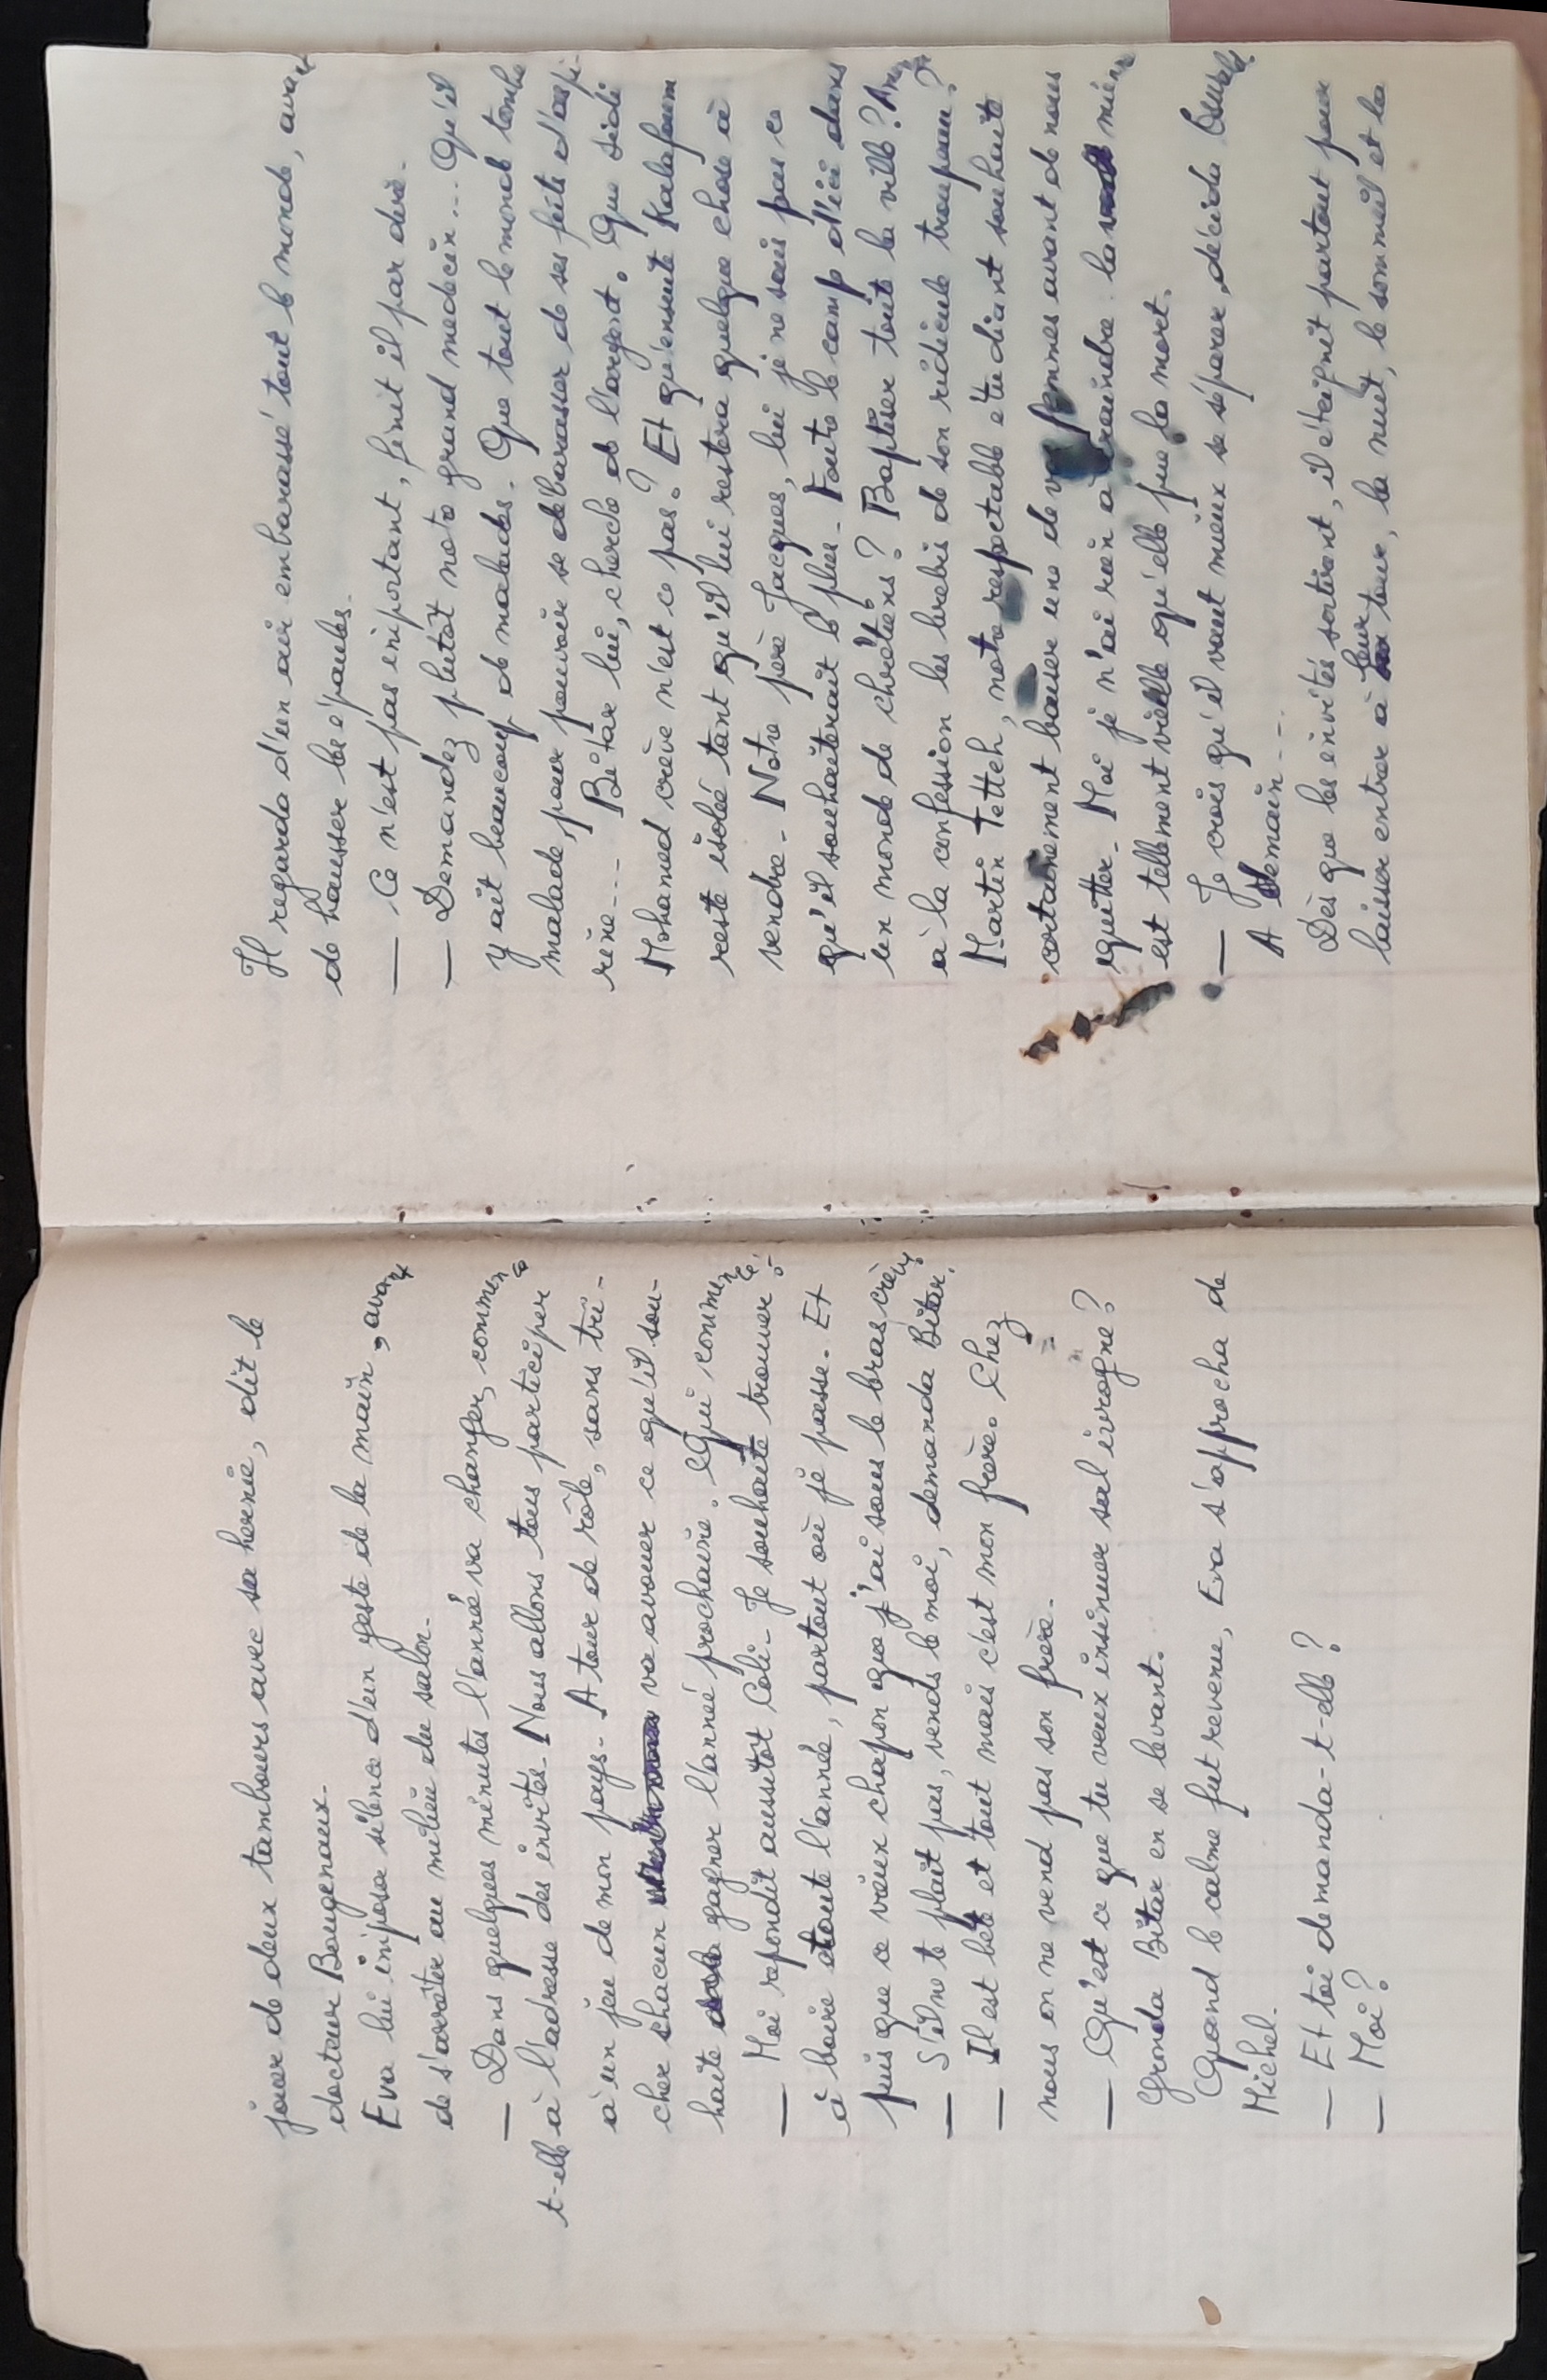 jouer de deux tambours avec sa hernie, dit le
docteur Bougenaux.
Eva lui imposa silence d'un geste de la main, avant
de s'arrêter au milieu du salon.
— Dans quelques minutes l'année va changer, commença
t-elle à l'adresse des invités. Nous allons tous participer
à un jeu de mon pays. A tour de rôle, sans tri-
cher chacun va avouer ce qu'il sou-
haite gagner l'année prochaine. Qui commence?
— Moi repondit aussitôt Coli. Je souhaite trouver
à boire toute l'année, partout où je passe. Et
puis que ce vieux chapon que j'ai sous le bras crève.
— S'il ne te plait pas, vends le moi, demanda Bitar.
— Il est bête et tout mais c'est mon frère. Chez
nous on ne vend pas son frère.
— Qu'est ce que tu veux insinuer sal ivrogne?
Gronda Bitar en se levant.
Quand le calme fut revenu, Eva s'approcha de
Michel.
— Et toi demanda-t-elle?
— Moi?
Il regarda d'un air embarassé tout le monde, avant
de hausser les épaules.
— Ce n'est pas important, finit il par dire.
— Demandez plutôt notre grand medecin... Qu'il
y ait beaucoup de malades. Que tout le monde tombe
malade, pour pouvoir se débarasser de ses fûts d'aspi-
rine... Bitar lui, cherche de l'argent. Que Sidi
Mohamed crève n'est ce pas? Et qu'ensuite Kalafoum
reste isolée tant qu'il lui restera quelque chose à
vendre. Notre père Jacques, lui je ne sais pas ce
qu'il souhaiterait le plus. Foutre le camp d'ici dans
un monde de chrétiens? Baptiser toute la ville? Amener
à la confession les brebis de son ridicule troupeau?
Martin Tetteh, notre respectable étudiant souhaite
certainement baiser une de vos femmes avant de nous
quitter. Moi je n'ai rien à craindre. la mienne
est tellement vieille qu'elle pue la mort.
— Je crois qu'il vaut mieux se séparer, décida
A demain...
Dès que les invités sortirent, il éteignit partout pour
laisser entrer à leur tour, la nuit, le sommeil et la